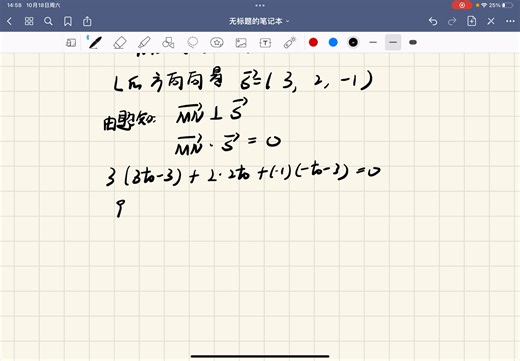 14:58 10月18日周六
25%
无标题的笔记本
L的方向向量 s⃗=(3, 2, -1)
由题知: MN⃗ ⊥ s⃗
MN⃗ · s⃗ = 0
3(3t₀-3) + 2·2t₀ + (-1)(-t₀-3) = 0
9